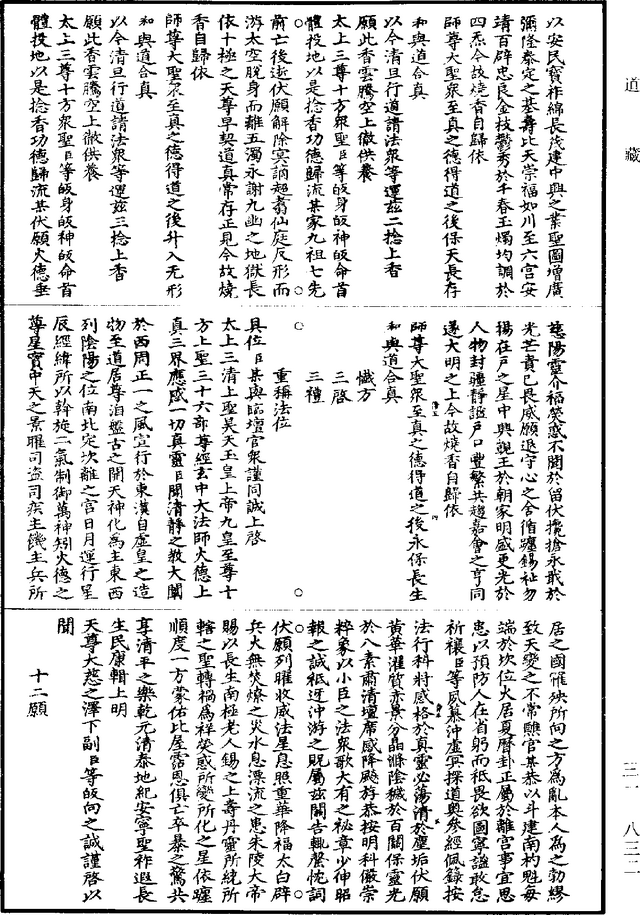 道藏
三一 八三二
以安民寳祚綿長茂建中興之業聖圖增廣
彌隆泰定之基壽比天崇福如川至六宮安
靖百辟忠良金枝鬱秀於千春玉燭均調於
四炁今故燒香自歸依
師尊大聖衆至真之德得道之後保天長存
和與道合真
以今清旦行道請法衆等運兹二捻上香
願此香雲騰空上徹供養
太上三尊十方衆聖臣等皈身皈神皈命首
體投地以是捻香功德歸流某家九祖七先
前亡後逝伏願解除冥訥超翥仙庭反形而
游太空脫身而離五濁永謝九幽之地獄長
依十極之天尊早契道真常存正見今故燒
香自歸依
師尊大聖衆至真之德得道之後升入无形
和與道合真
以今清旦行道請法衆等運兹三捻上香
願此香雲騰空上徹供養
太上三尊十方衆聖臣等皈身皈神皈命首
體投地以是捻香功德歸流某伏願火德垂
慈陽靈介福熒惑不聞於留伏攙搶永戢於
光芒責己畏威願退守心之舍循躔錫祉勿
揚在戶之星中興親王於朝家明盛更光於
人物封疆靜謐戶口豐繁共趨嘉會之亨同
遂大明之上今故燒香自歸依
師尊大聖衆至真之德得道之後永保長生
和與道合真
懺方
三啓
三禮
重稱法位
具位臣某與臨壇官衆謹同誠上啓
太上三清上聖昊天玉皇上帝九皇至尊十
方上聖三十六部尊經玄中大法師火德上
真三界應感一切真靈臣聞清靜之教大闡
於西周正一之風宣行於東漢自虛皇之造
物至道居尊洎盤古之開天神化爲主東西
列陰陽之位南北定坎離之宮日月運行星
辰經緯所以斡旋二氣制御萬神矧火德之
尊星實中天之景曜司盗司疾主饑主兵所
居之國罹殃所向之方爲亂本人爲之勃繆
致天變之不常雖官某恭以斗建南杓兊每
端於坎位火居夏曆卦正屬於離宮事宜思
患以預防人在省躬而祗畏欲國寧謐敢怠
祈禳臣等夙慕沖虛冥探道奥參經佩籙按
法行科將感格於真靈必蕩清於塵垢伏願
黄華濯質赤景分晶滌陰穢於百關保靈光
於八素肅清壇席感降飇斿恭按明科儼崇
粹象以小臣之法衆歌大有之秘章少伸昭
報之誠祗迓沖游之貺屬兹關告輒罄忱詞
伏願列曜收威法星息照重華降福太白辟
兵火無焚燎之災水息漂流之患朱陵大帝
賜以長生南極老人錫之上壽丹靈所統所
轄之聖轉禍爲祥熒惑所變所化之星依躔
順度一方蒙佑比屋露恩俱亡卒暴之驚共
享清平之樂乾元清泰地紀安寧聖祚遐長
生民康輯上明
天尊大慈之澤下副臣等皈向之誠謹啓以
聞
十二願